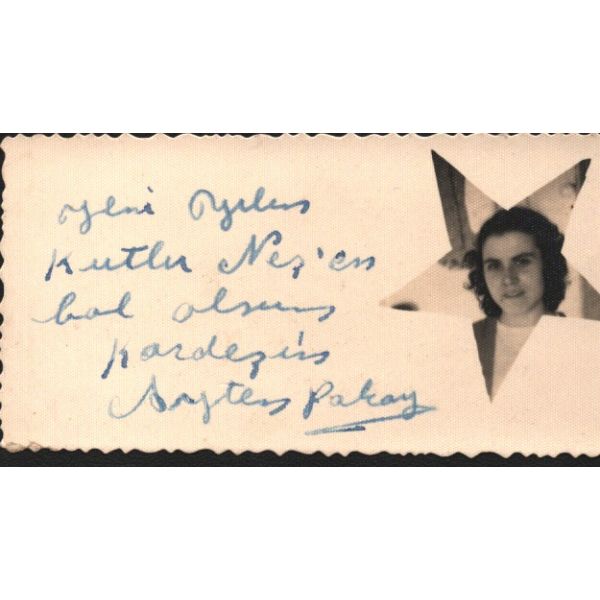 yeni yılın
Kutlu Neş'en
bol olsun
Kardeşin
Ayten Pakay